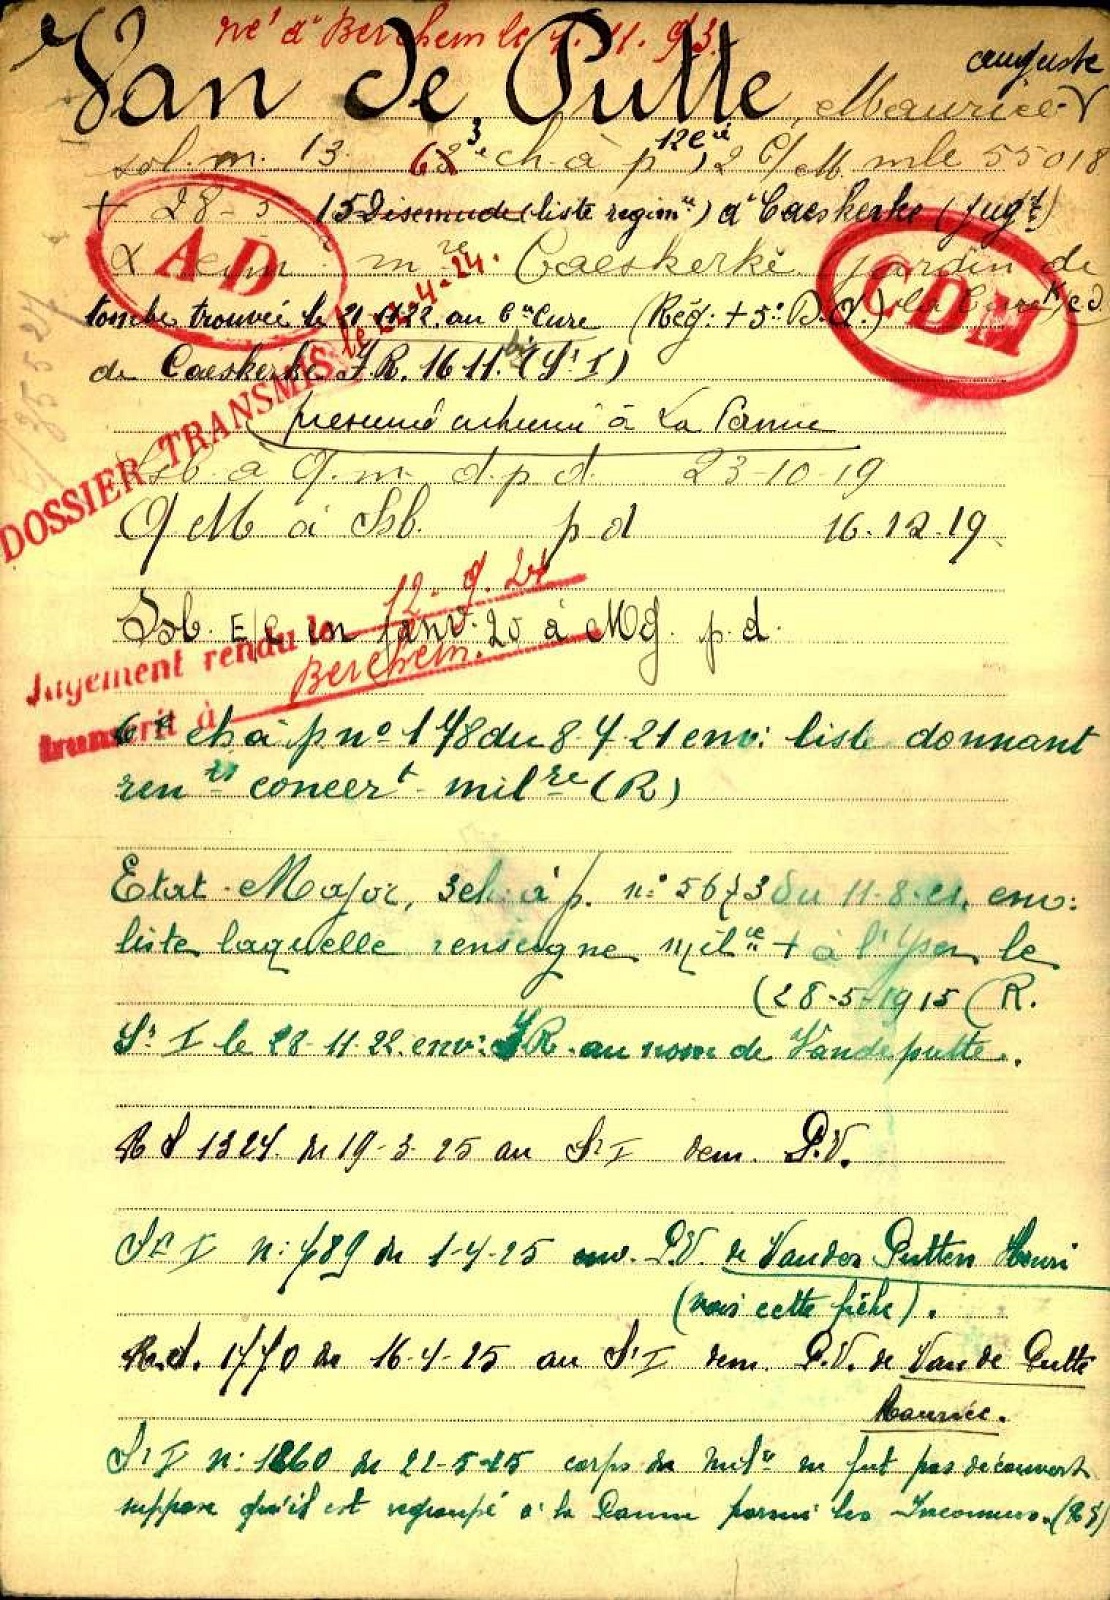 né à Berchem le 4.11.93.
Van de Putte, Maurice auguste
sol. m. 13 63e ch à p 12e cie, 2 C/M mle 55018
+ 28-5 15 Dixmude (liste regimre) à Caeskerke (jugt)
AD
CDM
mre Caeskerke jardin de
tombe trouvée le 22 au Cure (Rég: + 5e D.A.) la Cure
de Caeskerke F.R. 1611bis (St I)
présumé inhumé à La Panne
DOSSIER TRANSMIS le 4-24.
Ssb a Q.m. d.p.d. 23-10-19
QM à Ssb. p d 16.12.19
Ssb. E/C en janv. 20 à Mg. p.d.
Jugement rendu le 12.9.24
transcrit à Berchem.
6e ch à p no 178 du 8-4-21 env: liste donnant
rents concert milre (R)
Etat-Major, 3 ch. à p. n° 5673 du 11-8-21, env:
liste laquelle renseigne milre + à l'Yser le
(28-5-1915 (R.
St I le 28-11-22 env: FR au nom de Vandeputte.
RS 1324 du 19-3-25 au St I dem. P.V.
St I n: 789 du 1-4-25 env. P.V. de Vander Putten Henri
(voir cette fiche).
R.S. 1770 du 16-4-25 au St I dem. P.V. de Van de Putte
Maurice.
St I n: 1260 du 22-5-25 corps du milre ne fut pas découvert
suppose qu'il est regroupé à la Panne parmi les Inconnus. (RS)